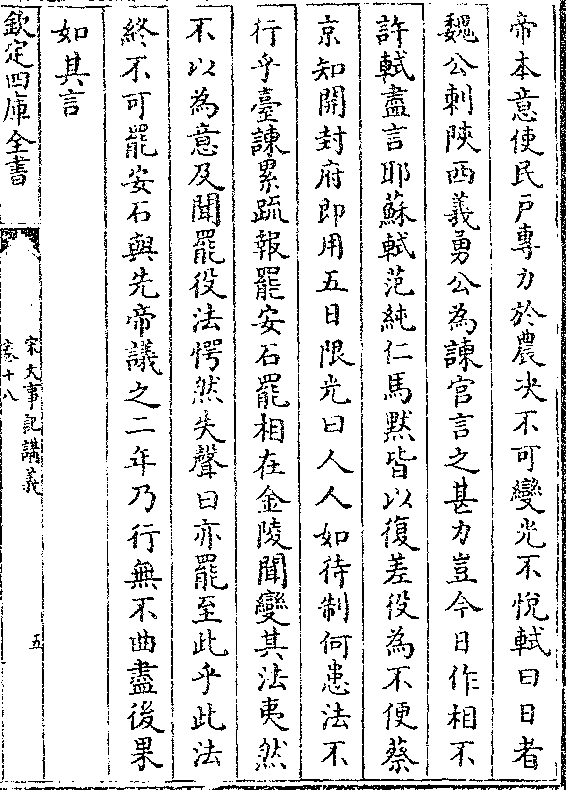 帝本意使民戶專力於農决不可變光不悅軾曰日者
魏公刺陜西義勇公為諫官言之甚力豈今日作相不
許軾盡言耶蘇軾范純仁馬黙皆以復差役為不便蔡
京知開封府即用五日限光曰人人如待制何患法不
行乎臺諫累疏報罷安石罷相在金陵聞變其法夷然
不以為意及聞罷役法愕然失聲曰亦罷至此乎此法
終不可罷安石與先帝議之二年乃行無不曲盡後果
如其言
欽定四庫全書
宋大事記講義
卷十八
五